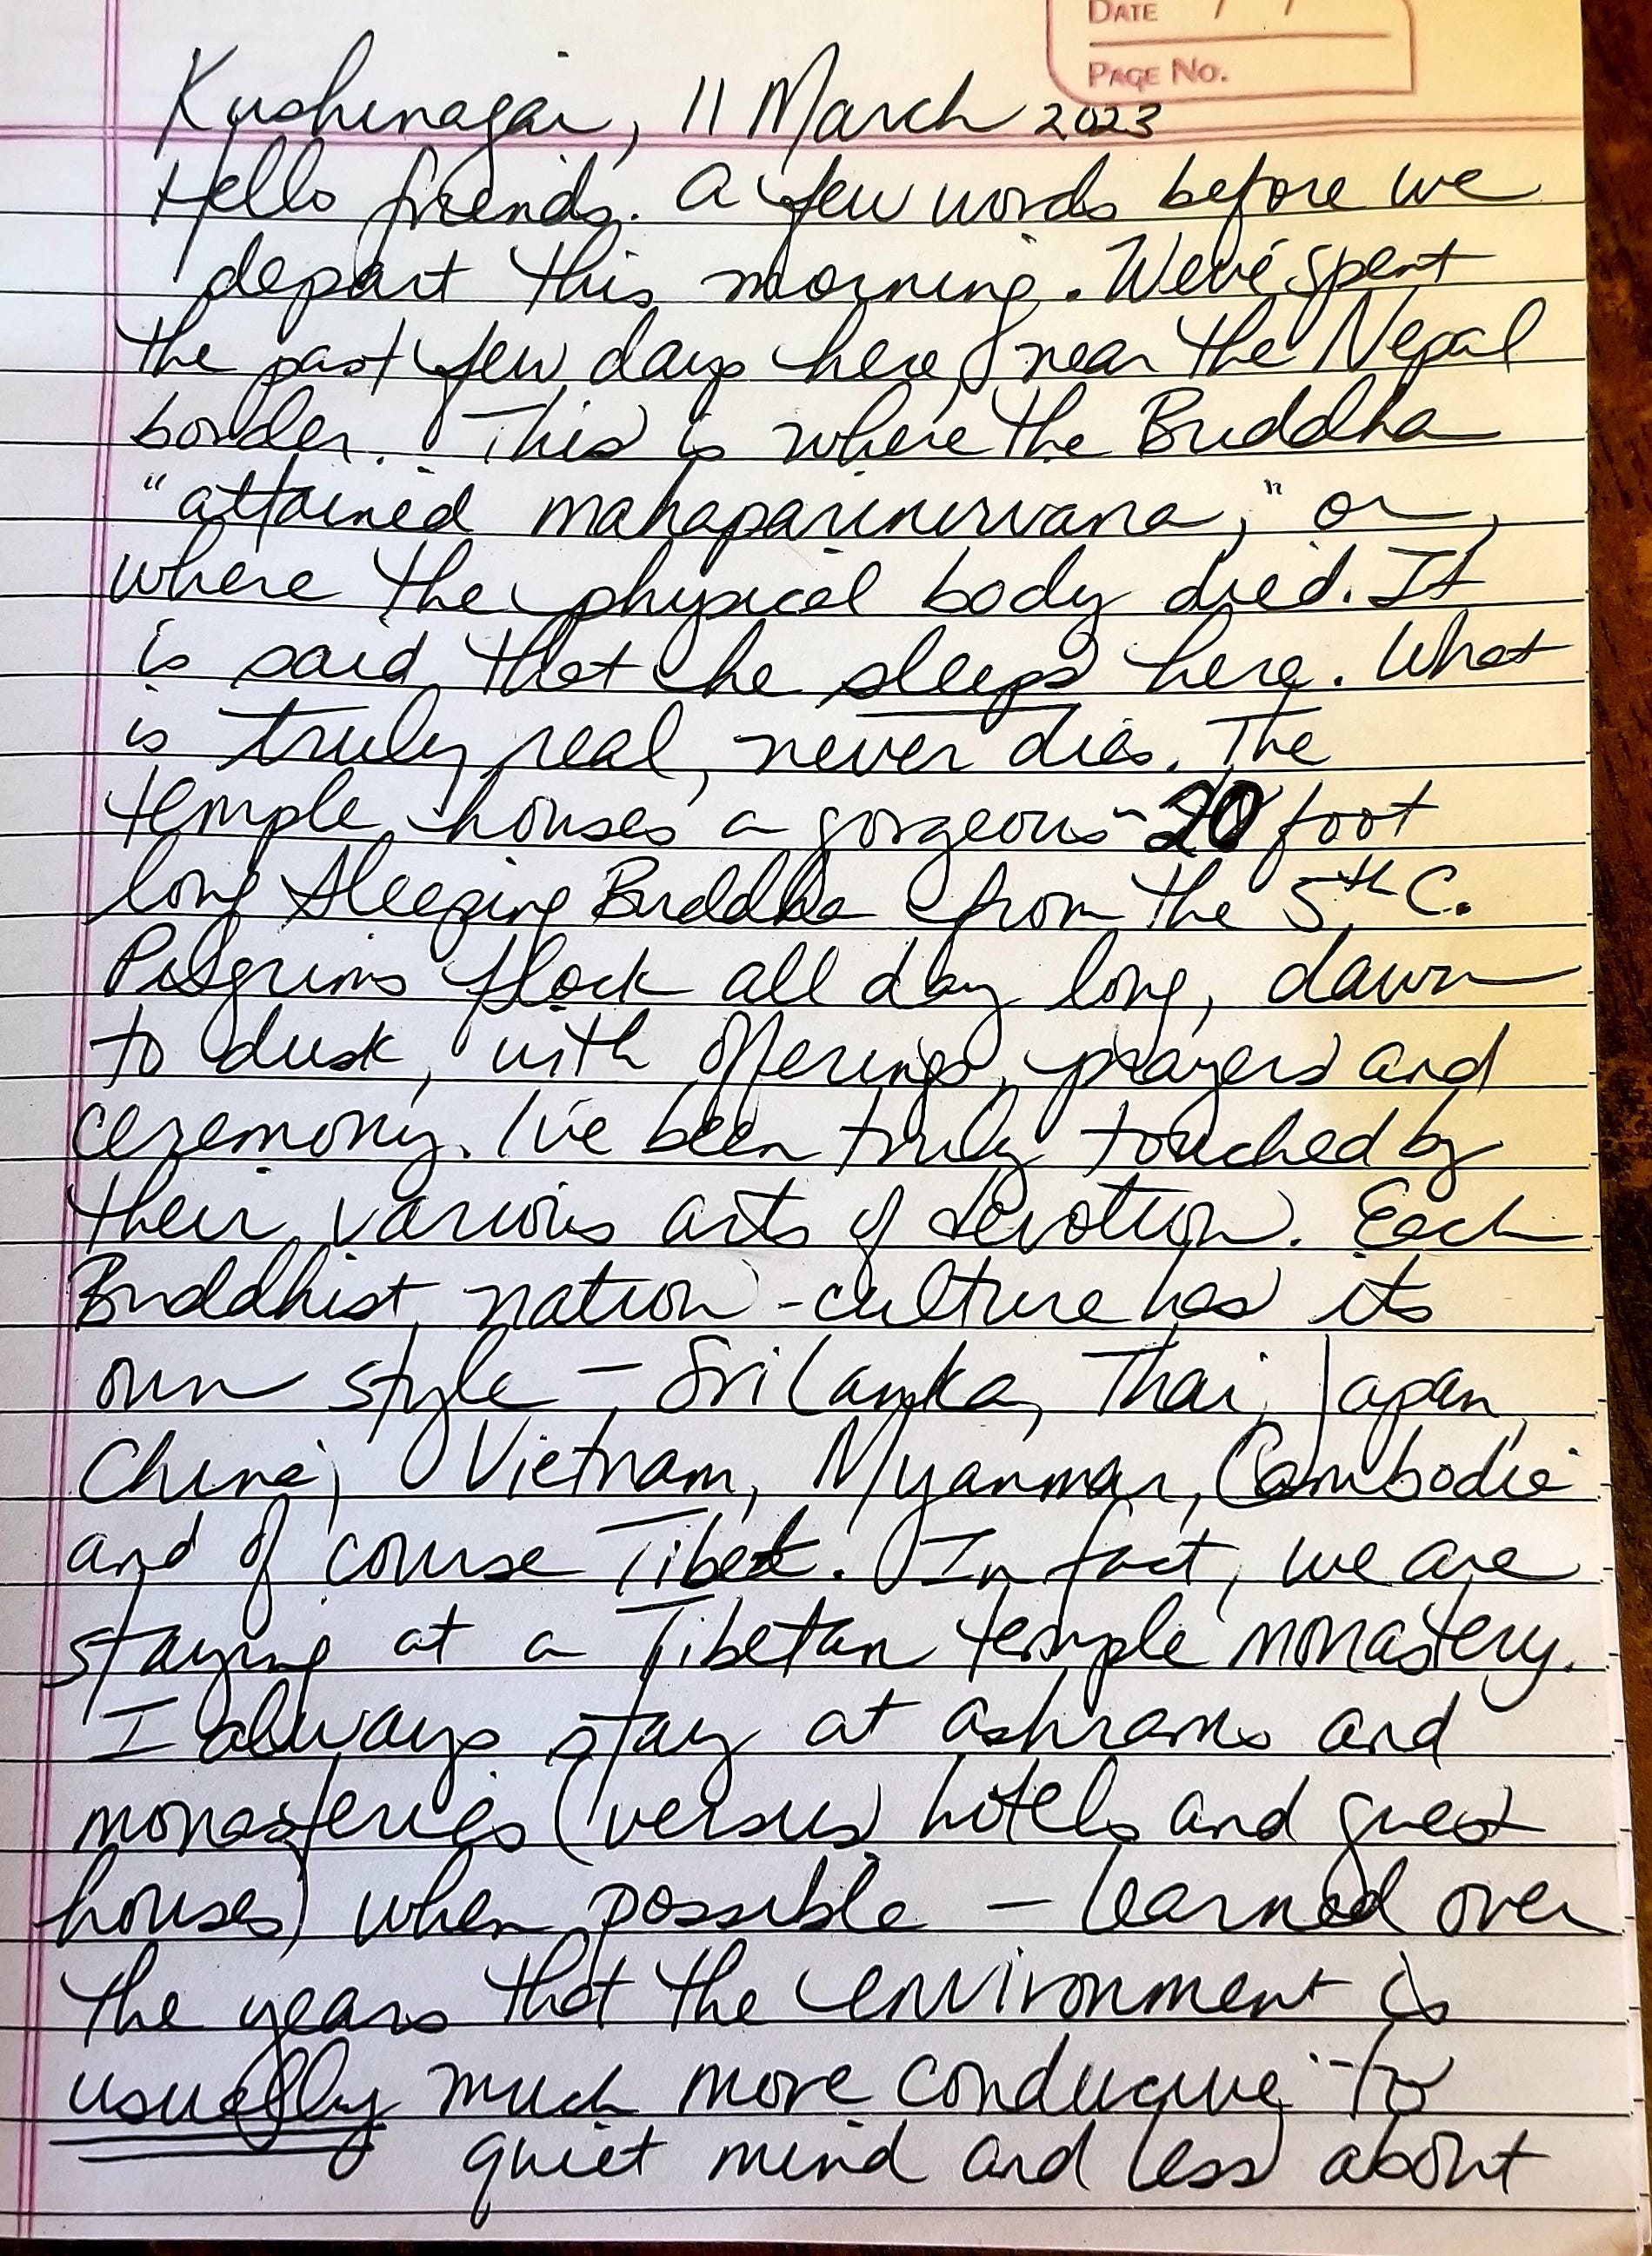 DATE / /
PAGE No.
Kushinagar, 11 March 2023
Hello friends. A few words before we
depart this morning. We've spent
the past few days here, near the Nepal
border. This is where the Buddha
"attained mahaparinirvana," or,
where the physical body died. It
is said that he sleeps here. What
is truly real, never dies. The
temple houses a gorgeous ~20 foot
long sleeping Buddha from the 5th C.
Pilgrims flock all day long, dawn
to dusk, with offerings, prayers and
ceremony. I've been truly touched by
their various arts of devotion. Each
Buddhist nation-culture has its
own style – Sri Lanka, Thai, Japan,
China, Vietnam, Myanmar, Cambodia
and of course Tibet. In fact, we are
staying at a Tibetan temple monastery.
I always stay at ashrams and
monasteries (versus hotels and guest
houses) when possible – learned over
the years that the environment is
usually much more conducive to
quiet mind and less about